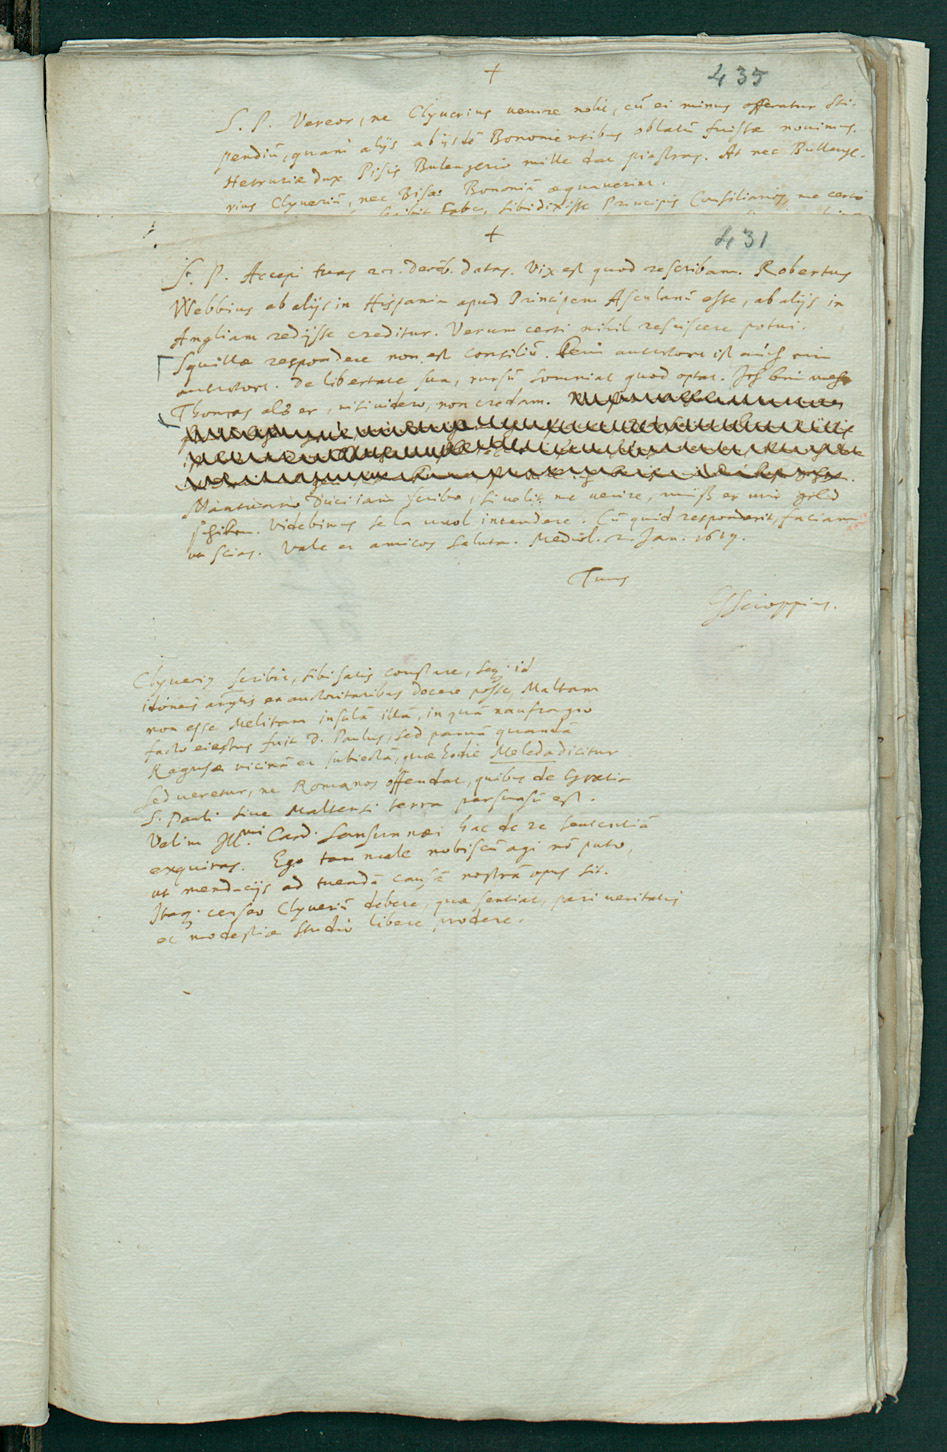 435
S. P. Vereor, ne Clyuerius uenire nolit, cũ ei minus offeratur sti-
pendiũ, quam alijs ab ijsdẽ Bononiensibus oblatũ fuisse nouimus.
Hetruriæ dux Pisis Bulengerio mille dat piastras. At nec Bullenge-
rius Clyueriũ, nec Pisæ Bononiã æquauerint.
sibi dixisse Principis Consiliarios, me certo
431
S. P. Accepi tuas 22. Decẽb. datas. Vix est quod rescribam. Robertus
Webbius ab alijs in Hispania apud Principem Asculanũ esse, ab alijs in
Angliam redijsse creditur. Verum certi nihil resciscere potui.
Squillæ respondere non est consiliũ. Kein antwort ist auch ein
antwort. De libertate sua, rursũ somniat quod optat. Ich bin mehr
Thomas als er, nisi uidero, non credam.
Mantuano Duci iam scribo, si uelit me uenire, muß er mir geld
schiken. Videbimus se la uuol intendere. Cũ quid responderit, faciam
ut scias. Vale et amicos saluta. Mediol. 2. Jan. 1619.
Tuus
GScioppius.
Clyueriꝰ scribit, sibi satis constare, seqʒ id
idoneis argtis ex auctoritatibus docere posse, Maltam
non esse Melitam insulã illã, in quã naufragio
facto eiectus fuit D. Paulus, sed paruã quandã
Ragusæ uicinã et subiectã, quæ hodie Meleda dicitur
sed ueretur, ne Romanos offendat, quibus de Gratia
S. Pauli siue Maltensi terra persuasũ est.
Velim Ill.mi Card. hac de re sententiã
exquiras. Ego tam male nobiscũ agi nõ puto,
ut mendacijs ad tuendã causã nostrã opus sit.
Itaqʒ censeo Clyueriũ debere, quæ sentiat, pari ueritatis
et modestiæ studio libere prodere.